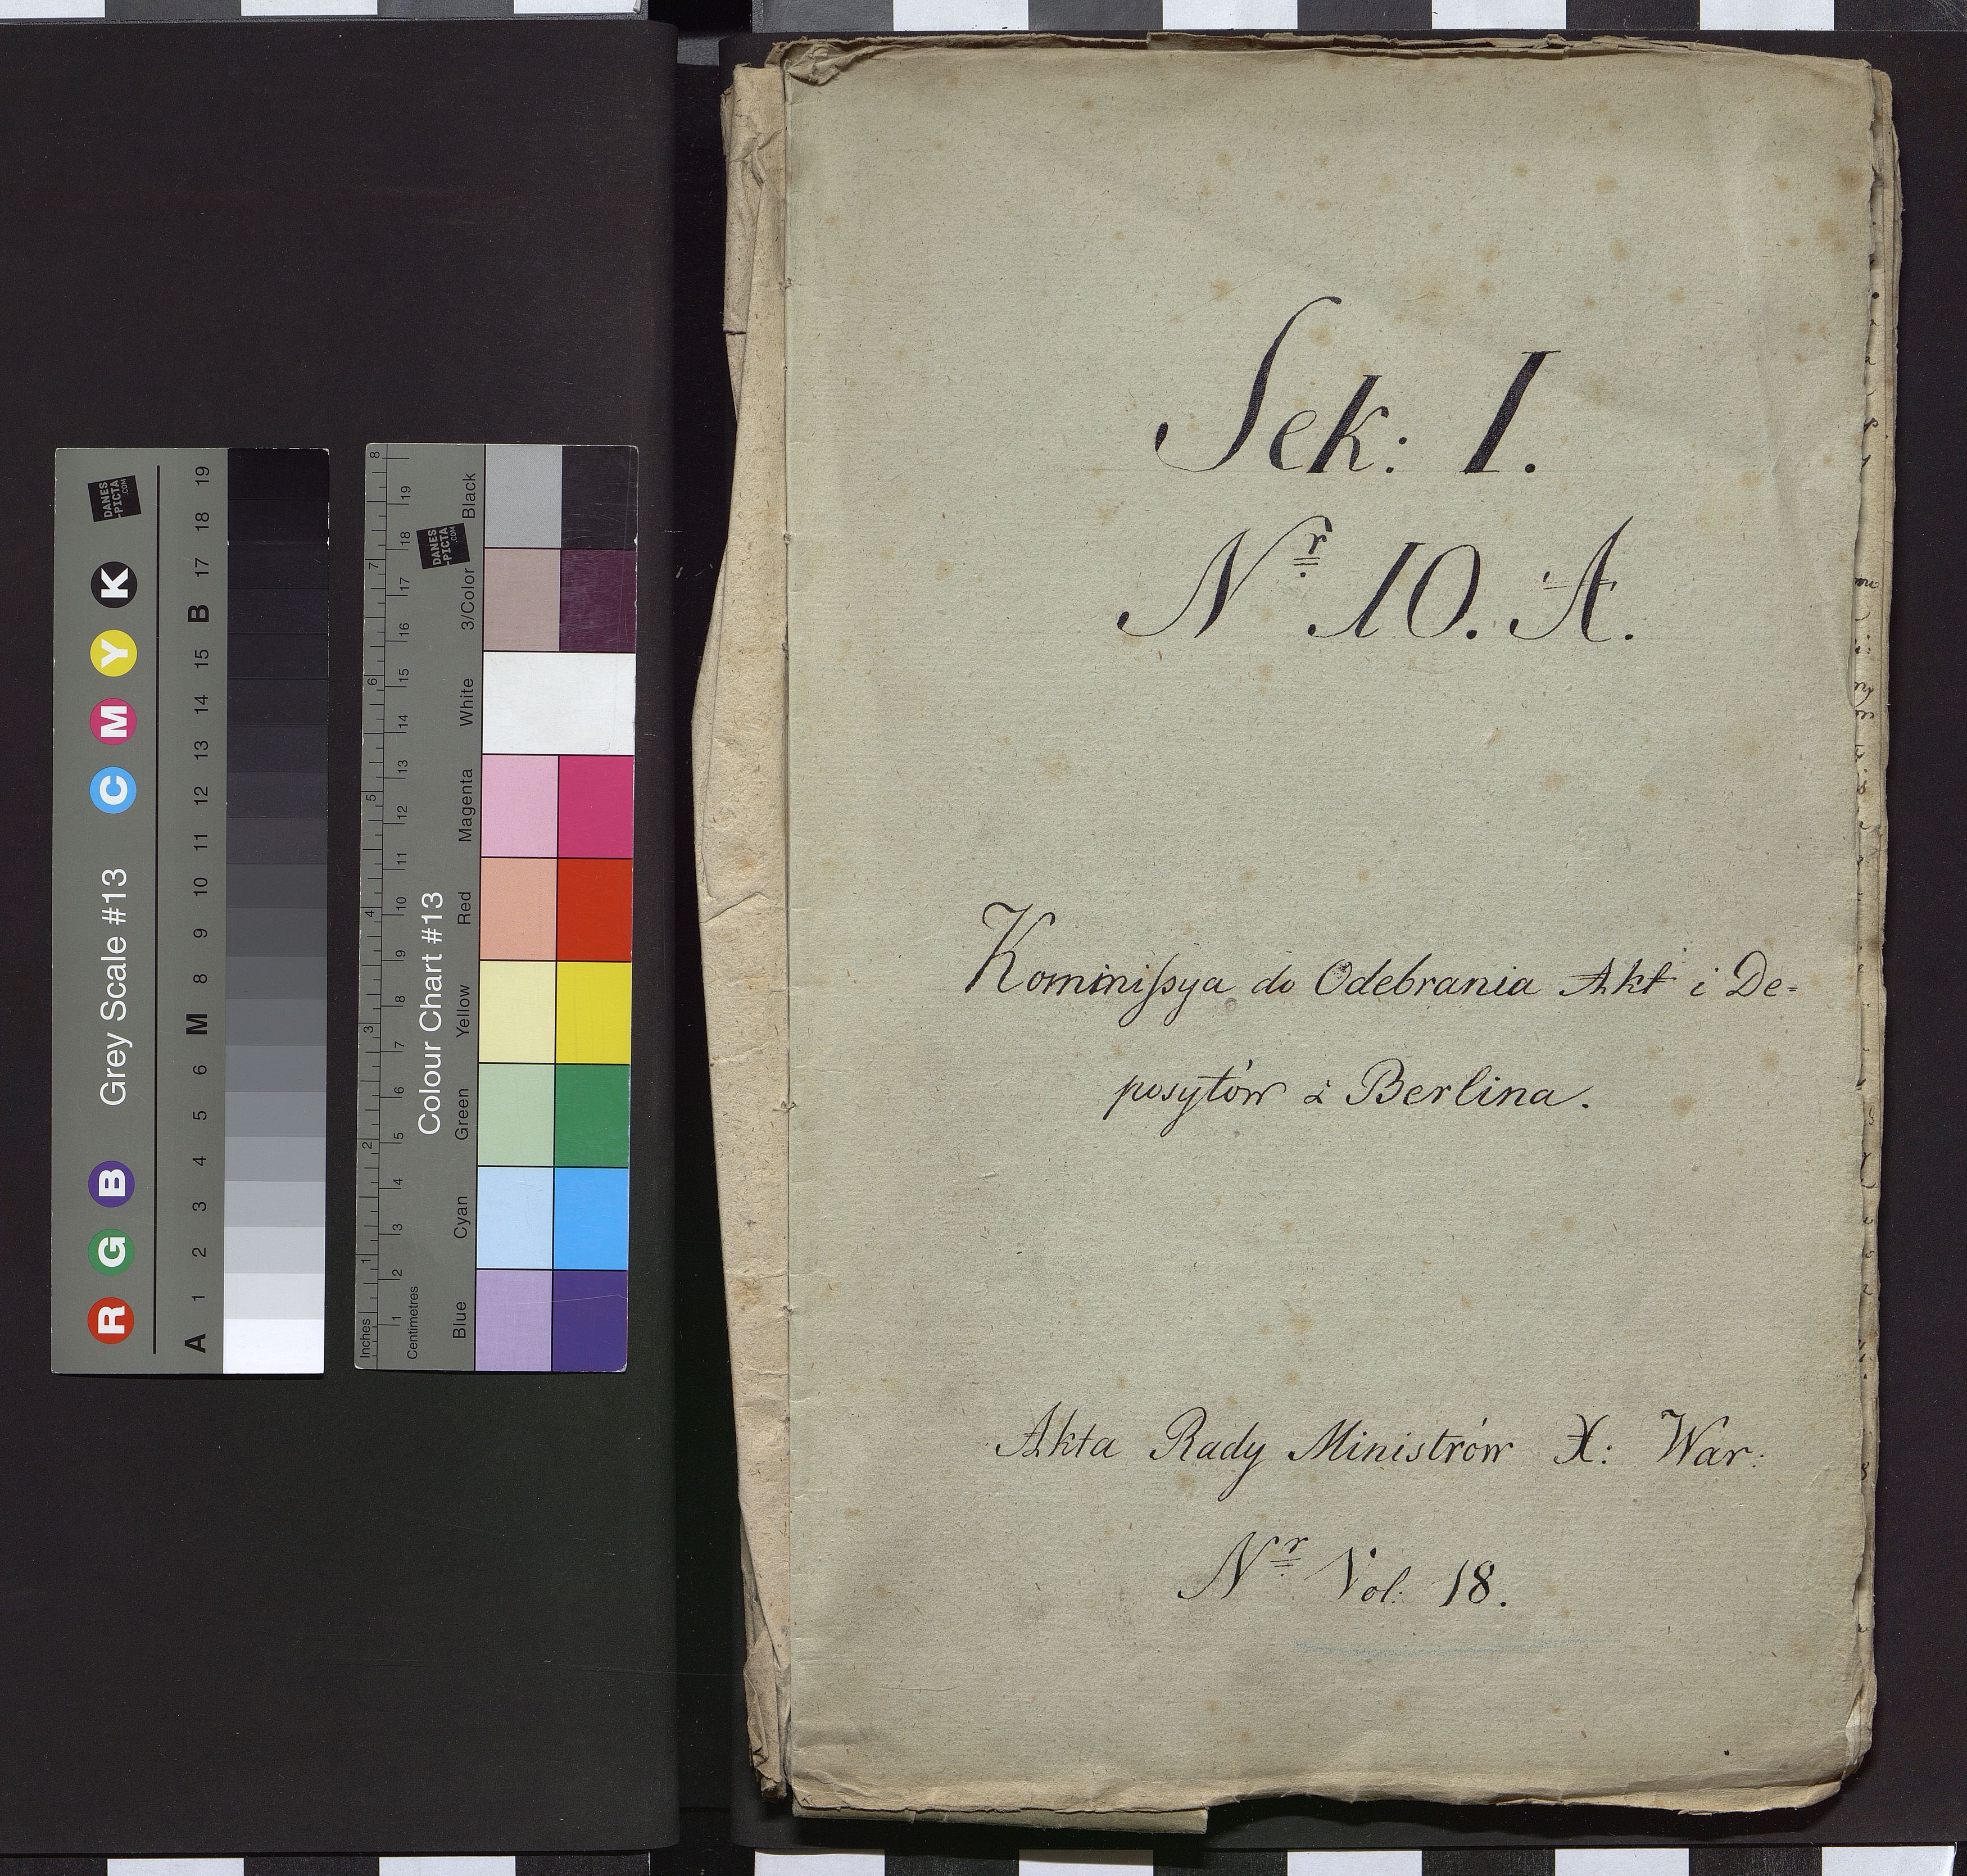 Sek: I.
Nr 10. A.
Kommissya do Odebrania Akt i De-
posytów z Berlina.
Akta Rady Ministrów X: War:
Nr Vol: 18.
Grey Scale #13
R G B C M Y K
A 1 2 3 4 5 6 M 8 9 10 11 12 13 14 15 B 17 18 19
DANES
-PICTA
.COM
Colour Chart #13
Blue Cyan Green Yellow Red Magenta White 3/Color Black
Inches 1 2 3 4 5 6 7 8
Centimetres 1 2 3 4 5 6 7 8 9 10 11 12 13 14 15 16 17 18 19
DANES
-PICTA
.COM